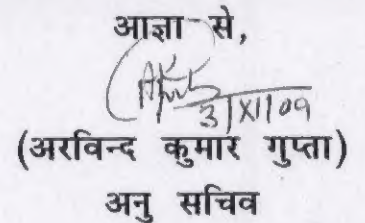 आज्ञा से,
3/XI/09
(अरविन्द कुमार गुप्ता)
अनु सचिव